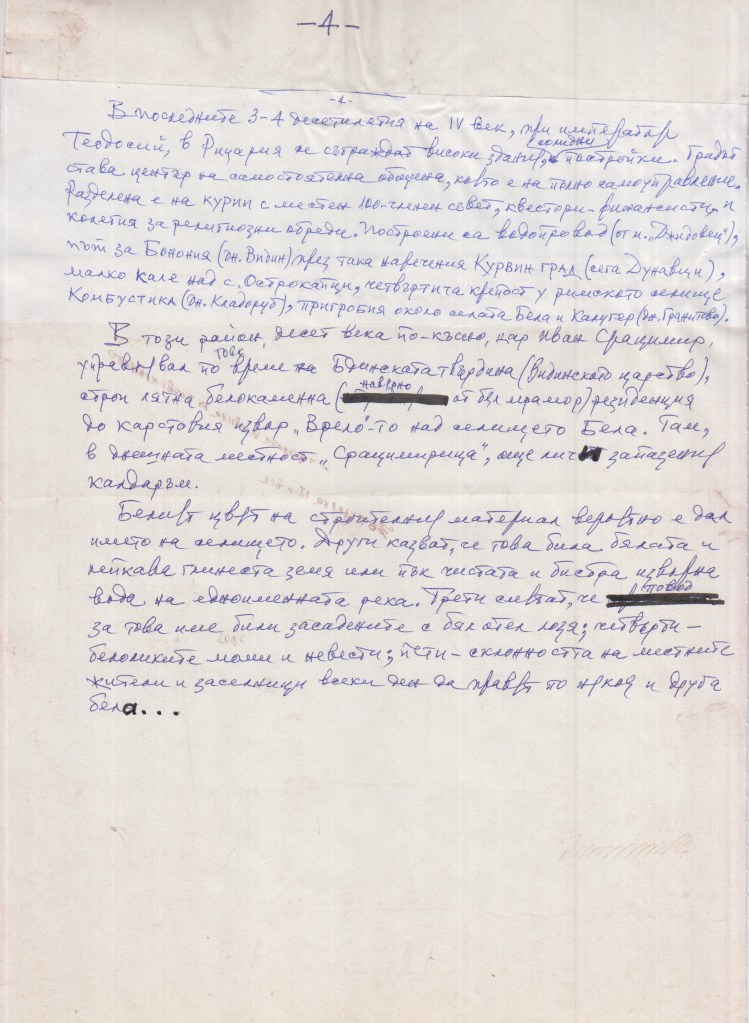 -4-
-4-
В последните 3-4 десетилетия на IV век, при император
солидни
Теодосий, в Рицария се съграждат високи здания, постройки. Градът
става център на самостоятелна община, която е на пълно самоуправление.
Разделена е на курии с местен 100-членен съвет, квестори-финансисти и
колегия за религиозни обреди. Построени са водопровод (от м. „Джидовец“),
път за Бонония (дн. Видин) през така наречения Курвин град (сега Дунавци),
малко кале над с. Острокапци, четвъртита крепост у римското селище
Комбустика (дн. Кладоруб), пригробия около селата Бела и Калугер (дн. Гранитово).
В този район, десет века по-късно, цар Иван Срацимир,
това
управлявал по време на Бдинската твърдина (Видинското царство),
наверно
строи лятна белокаменна ( от бял мрамор) резиденция
до карстовия извор „Врело“-то над селището Бела. Там,
в днешната местност „Срацимирица“, още личи запазения
калдъръм.
Белият цвят на строителния материал вероятно е дал
името на селището. Други казват, че това била бялата и
лейкава глинеста земя или пък чистата и бистра изворна
вода на едноименната река. Трети смятат, че повод
за това име били засадените с бял отел лозя; четвърти -
белоликите моми и невести; пети - склонността на местните
жители и заселници всеки ден да правят по някоя и друга
бела...